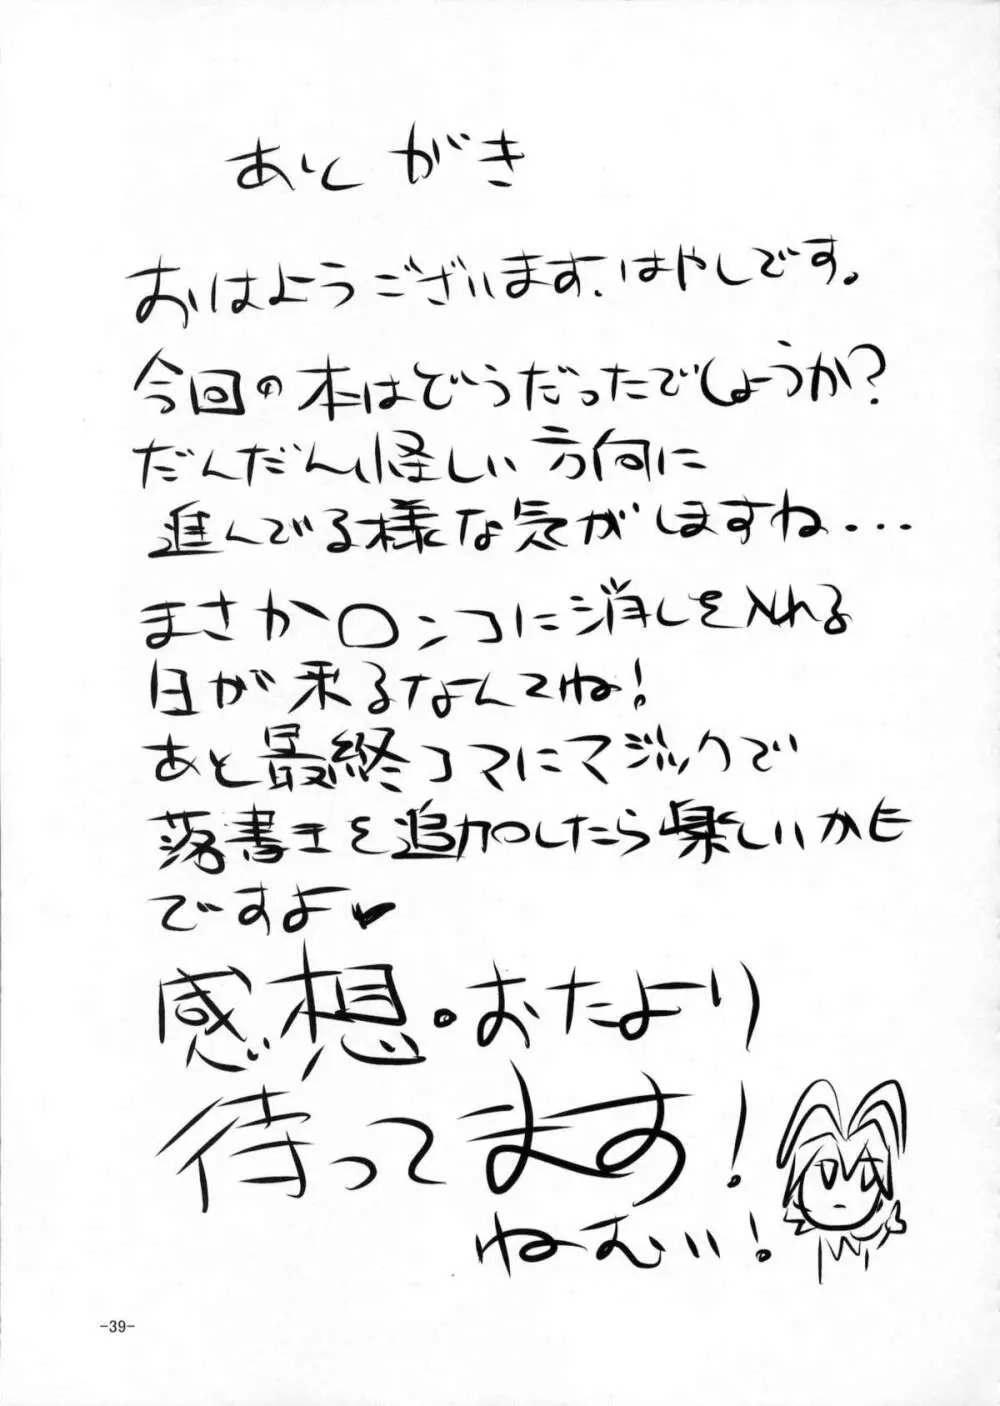 あとがき
おはようございます、はやしです。
今回の本はどうだったでしょうか?
だんだん怪しい方向に
進んでる様な気がしますね・・・
まさかロンコに消しを入れる
日が来るなんてね!
あと最終コマにマジックで
落書きを追加したら楽しいかも
ですよ♥
感想・おたより
待ってます!
ねむいい!
-39-